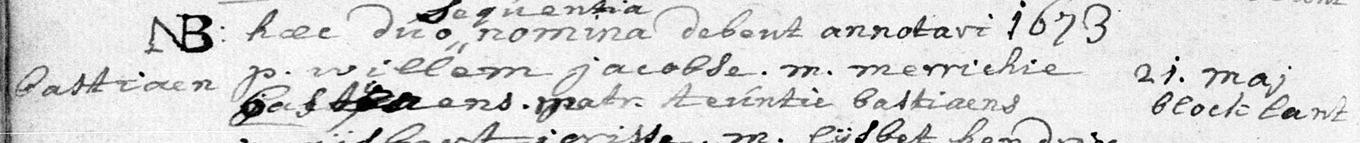 sequentia
NB: hæc duo nomina debent annotari 1673
bastiaen p. willem jacobse. m. merrichie 21. maj
bastiaens. matr. teuntie bastiaens blocklant
m. lijsbet hendrix